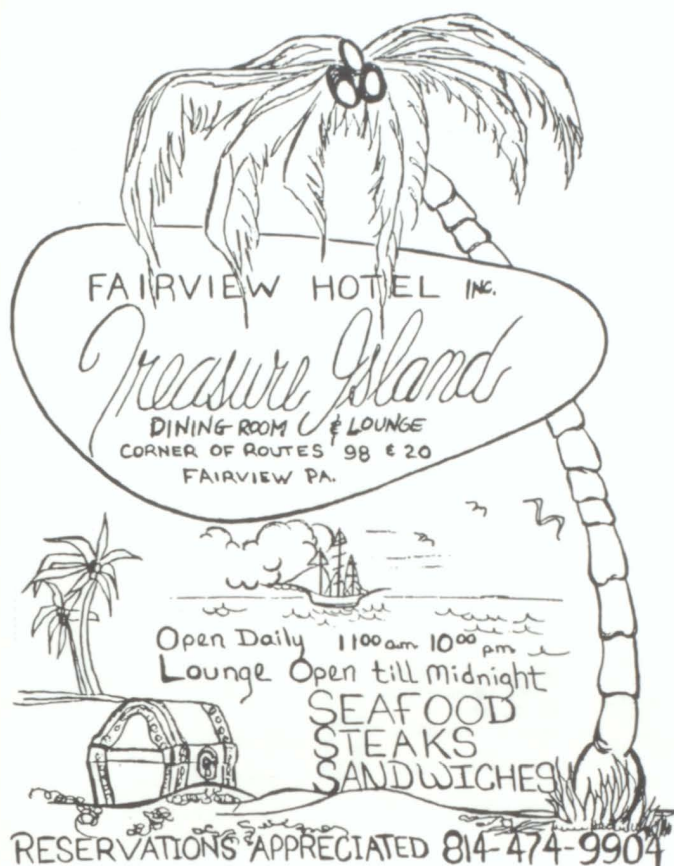 FAIRVIEW HOTEL INC.
Treasure Island
DINING ROOM & LOUNGE
CORNER OF ROUTES 98 & 20
FAIRVIEW PA.
Open Daily 11⁰⁰ am 10⁰⁰ pm
Lounge Open till Midnight
SEAFOOD
STEAKS
SANDWICHES
RESERVATIONS APPRECIATED 814-474-9904